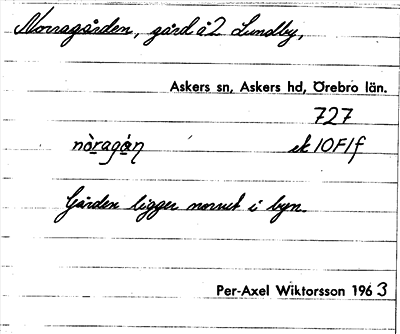 Norragården, gård å 2 Lundby,
Askers sn, Askers hd, Örebro län.
727
nòragàṇ ek 10F1f
Gården ligger norrut i byn.
Per-Axel Wiktorsson 1963